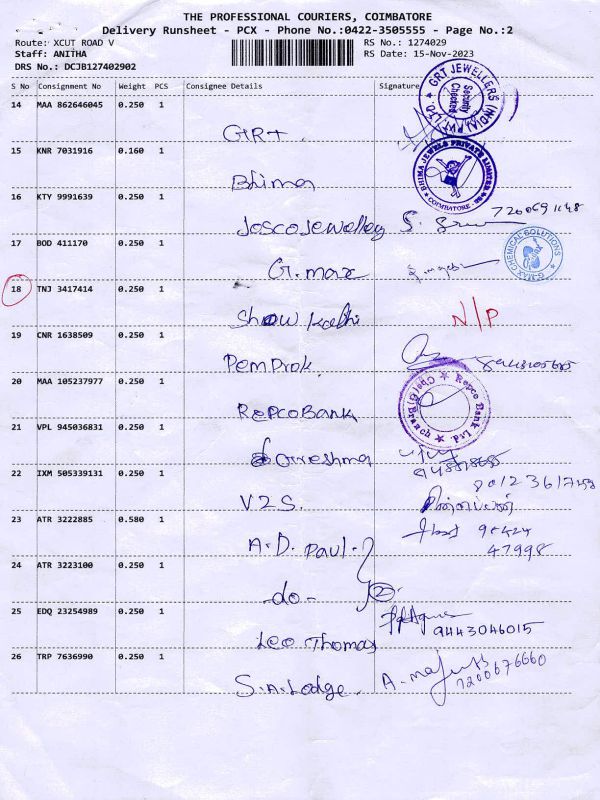 THE PROFESSIONAL COURIERS, COIMBATORE
Delivery Runsheet - PCX - Phone No.:0422-3505555 - Page No.:2
Route: XCUT ROAD V RS No.: 1274029
Staff: ANITHA RS Date: 15-Nov-2023
DRS No.: DCJB127402902
S No Consignment No Weight PCS Consignee Details Signature
14 MAA 862646045 0.250 1 GRT
GRT JEWELLERS (INDIA) PVT. LTD.
Security Checked
15 KNR 7031916 0.160 1 Bhima
BHIMA JEWELS PRIVATE LIMITED
COIMBATORE
16 KTY 9991639 0.250 1 Josco Jewelley S.
17 BOD 411170 0.250 1 G.max
G-MAX CHEMICAL SOLUTIONS
18 TNJ 3417414 0.250 1 N/P
19 CNR 1638509 0.250 1 Pemprok
20 MAA 105237977 0.250 1 RepcoBank
Repco Bank
Branch
21 VPL 945036831 0.250 1
22 IXM 505339131 0.250 1 V2S.
23 ATR 3222885 0.580 1 A.D. Paul. 90424
47998
24 ATR 3223100 0.250 1 -do- 2
25 EDQ 23254989 0.250 1 Leo Thomas 9443046015
26 TRP 7636990 0.250 1 S.A. Lodge. A.
7200676660